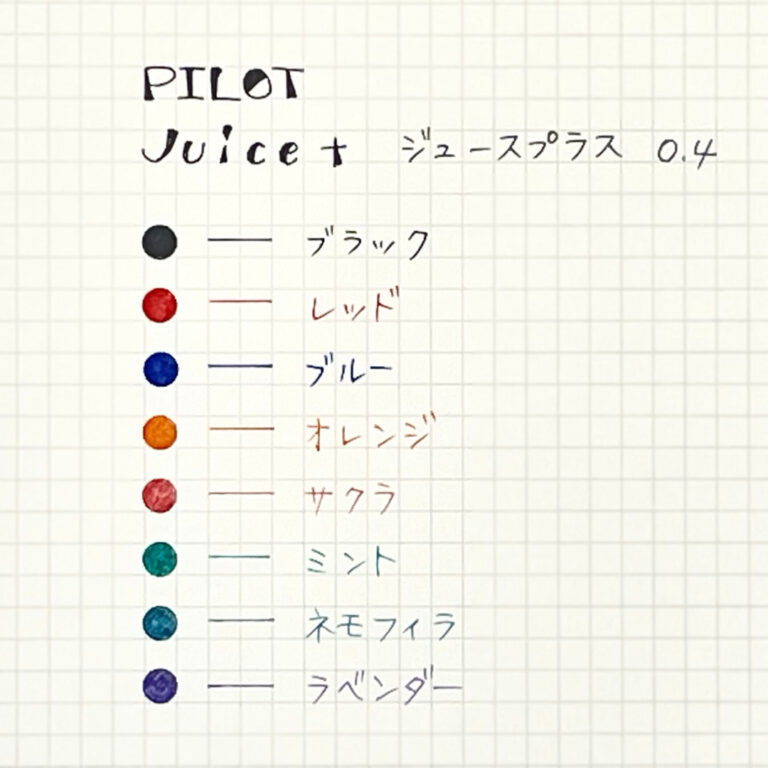 PILOT
Juice+ ジュースプラス 0.4
ブラック
レッド
ブルー
オレンジ
サクラ
ミント
ネモフィラ
ラベンダー